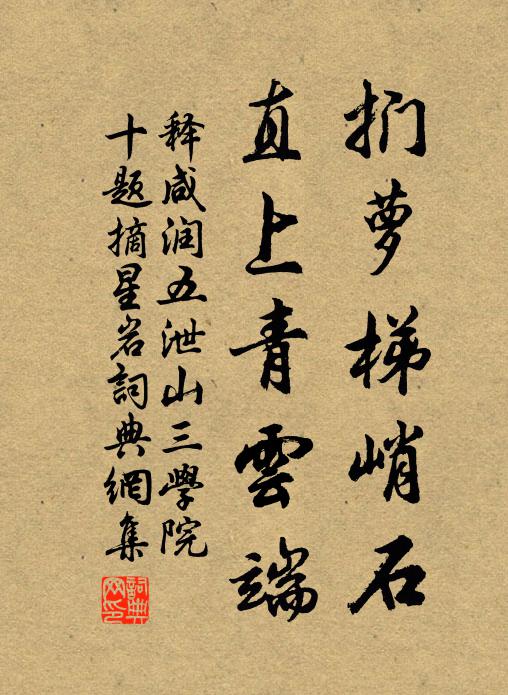 扪萝梯峭石
直上青雲端
释咸润五泄山三學院
十题摘星岩詞典網集
詞典網印